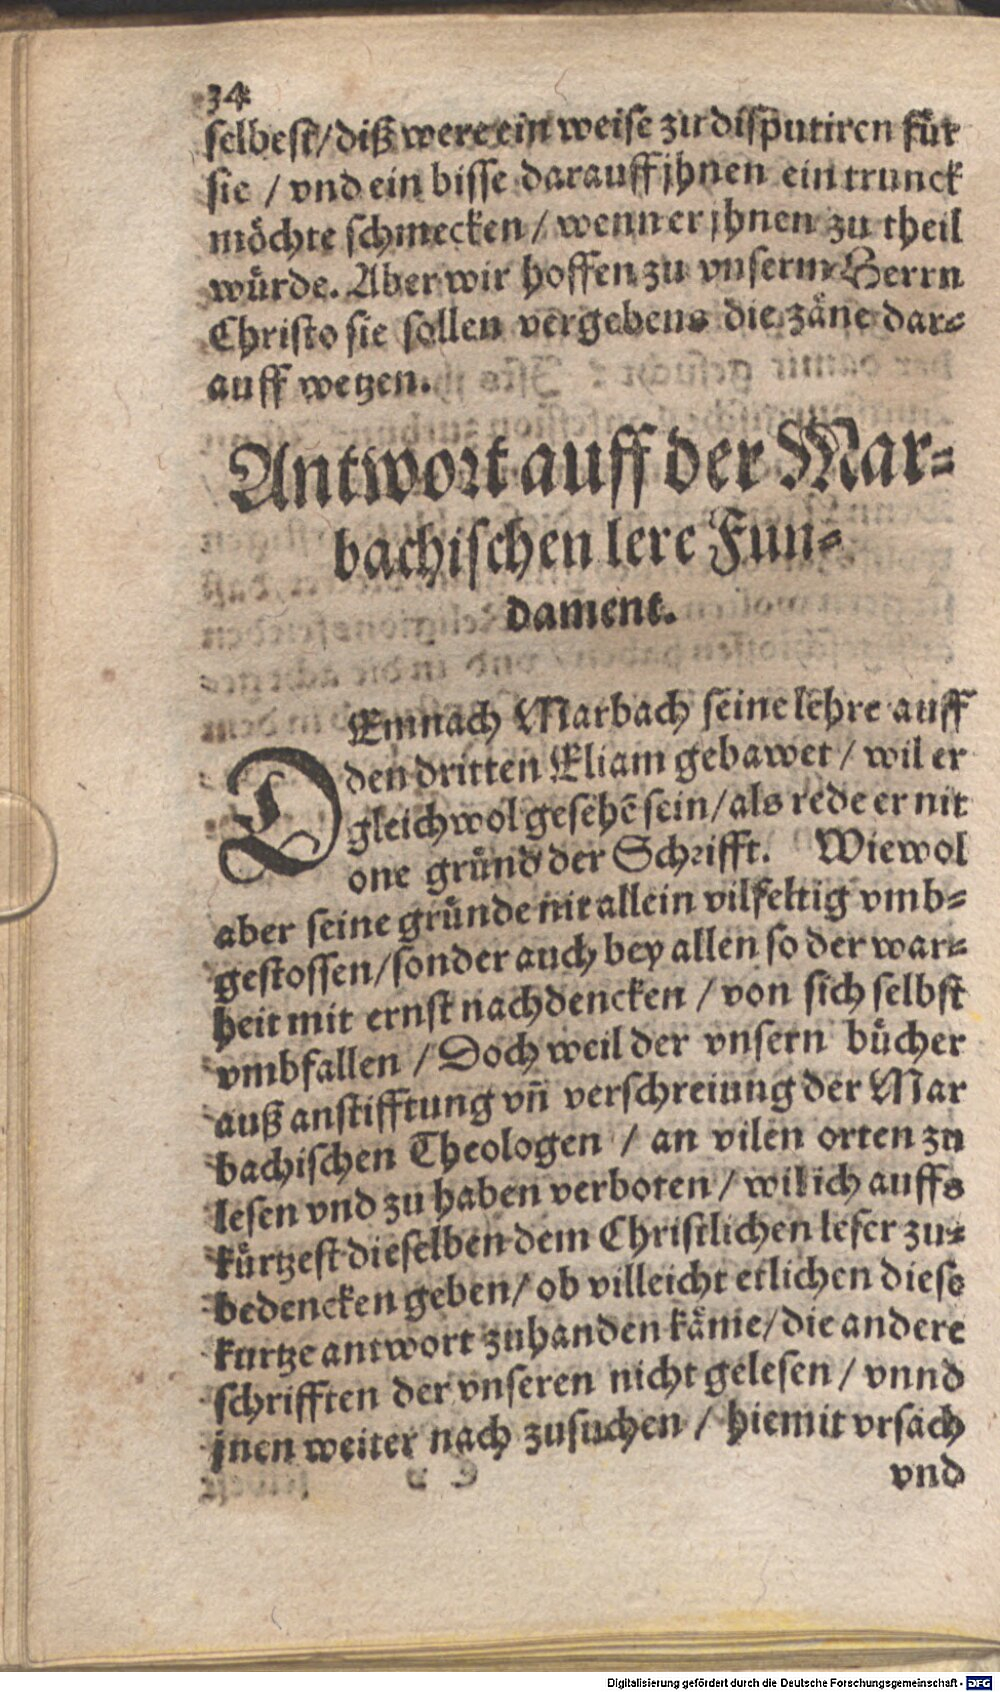 34
selbest/diß were ein weise zu disputiren fuͤr
sie / vnd ein bisse darauff jhnen ein trunck
moͤchte schmecken / wenn er jhnen zu theil
wuͤrde. Aber wir hoffen zu vnserm Herrn
Christo sie sollen vergebens die zaͤne dar-
auff wetzen.
Antwort auff der Mar-
bachischen lere Fun-
dament.
DEmnach Marbach seine lehre auff
den dritten Eliam gebawet / wil er
gleichwol gesehē sein/als rede er nit
one gruͤnd der Schrifft. Wiewol
aber seine gruͤnde nit allein vilfeltig vmb-
gestossen/sonder auch bey allen so der war-
heit mit ernst nachdencken / von sich selbst
vmbfallen / Doch weil der vnsern buͤcher
auß anstifftung vn̄ verschreiung der Mar
bachischen Theologen / an vilen orten zu
lesen vnd zu haben verboten / wil ich auffs
kuͤrtzest dieselben dem Christlichen leser zu-
bedencken geben/ ob villeicht etlichen diese
kurtze antwort zuhanden kaͤme/die andere
schrifften der vnseren nicht gelesen / vnnd
jnen weiter nach zusuchen / hiemit vrsach
vnd
Digitalisierung gefördert durch die Deutsche Forschungsgemeinschaft - DFG